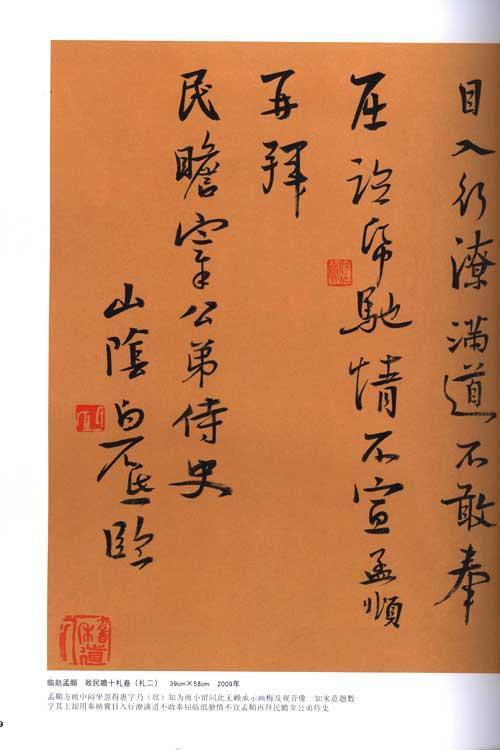 目入行潦满道不敢奉
屈临帋馳情不宣孟頫
再拜
民瞻宰公弟侍史
山陰白砥臨
临赵孟頫 致民瞻十札卷（札二） 39cm×58cm 2009年
孟頫方雨中闷坐忽得惠字乃（欣）知为雨小留同此无赖承示画梅及观音像 如来意题数
字其上却用奉纳冀目入行潦满道不敢奉屈临纸驰情不宣孟頫再拜民瞻宰公弟侍史
9